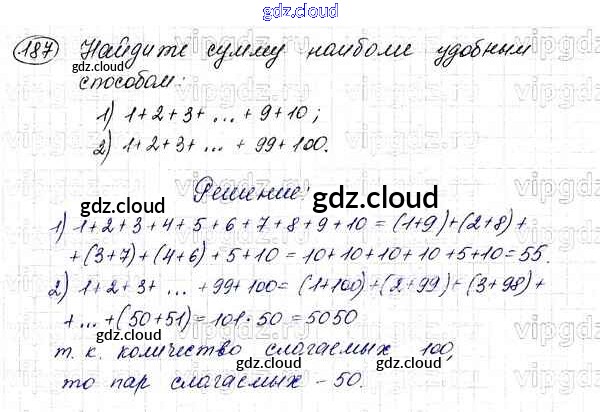 gdz.cloud
187 Найдите сумму наиболее удобным
gdz.cloud gdz.cloud
способом:
1) 1+2+3+ ... + 9+10;
2) 1+2+3+ ... + 99+100.
Решение:
gdz.cloud gdz.cloud
1) 1+2+3+4+5+6+7+8+9+10=(1+9)+(2+8)+
+(3+7)+(4+6)+5+10=10+10+10+10+5+10=55.
2) 1+2+3+ ... +99+100=(1+100)+(2+99)+(3+98)+
+...+(50+51)=101·50=5050
т.к. количество слагаемых 100,
gdz.cloud gdz.cloud
то пар слагаемых – 50.